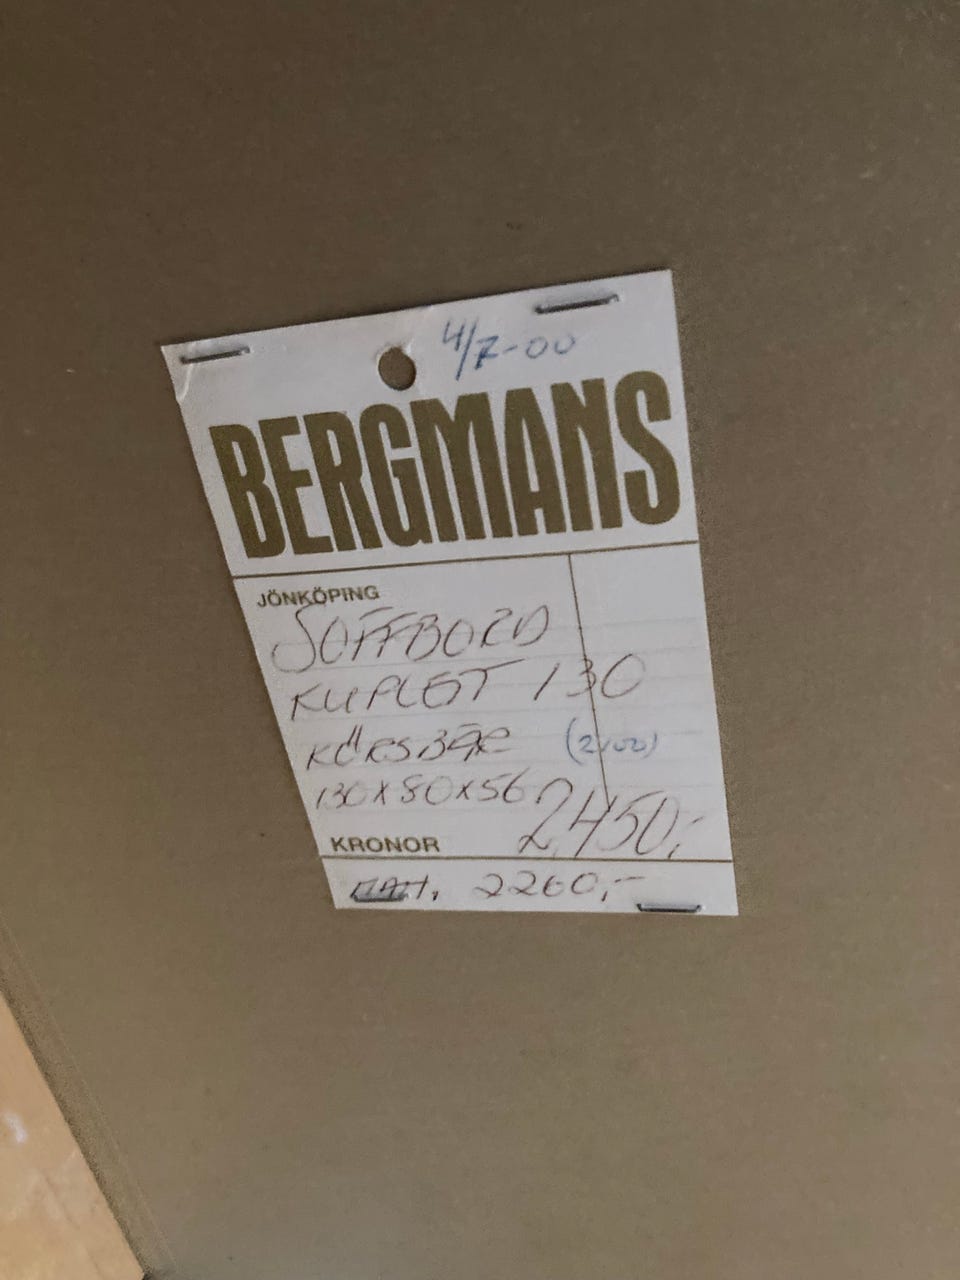 4/7-00
BERGMANS
JÖNKÖPING
SOFFBORD
KUPLET 130
KÖRSBÄR (2100)
130x80x56 2.450,-
KRONOR
MAH. 2260,-